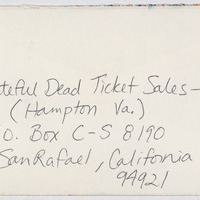 teful Dead Ticket Sales—
(Hampton Va.)
O. Box C-S 8190
San Rafael, California
94921